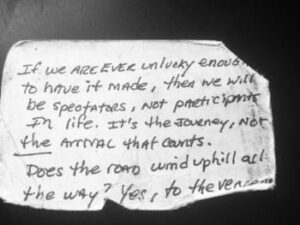 If we ARE EVER unlucky enough
to have it made, then we will
be spectators, not participants
in life. It's the Journey, Not
the ARRIVAL that counts.
Does the ROAD wind uphill all
the way? Yes, to the